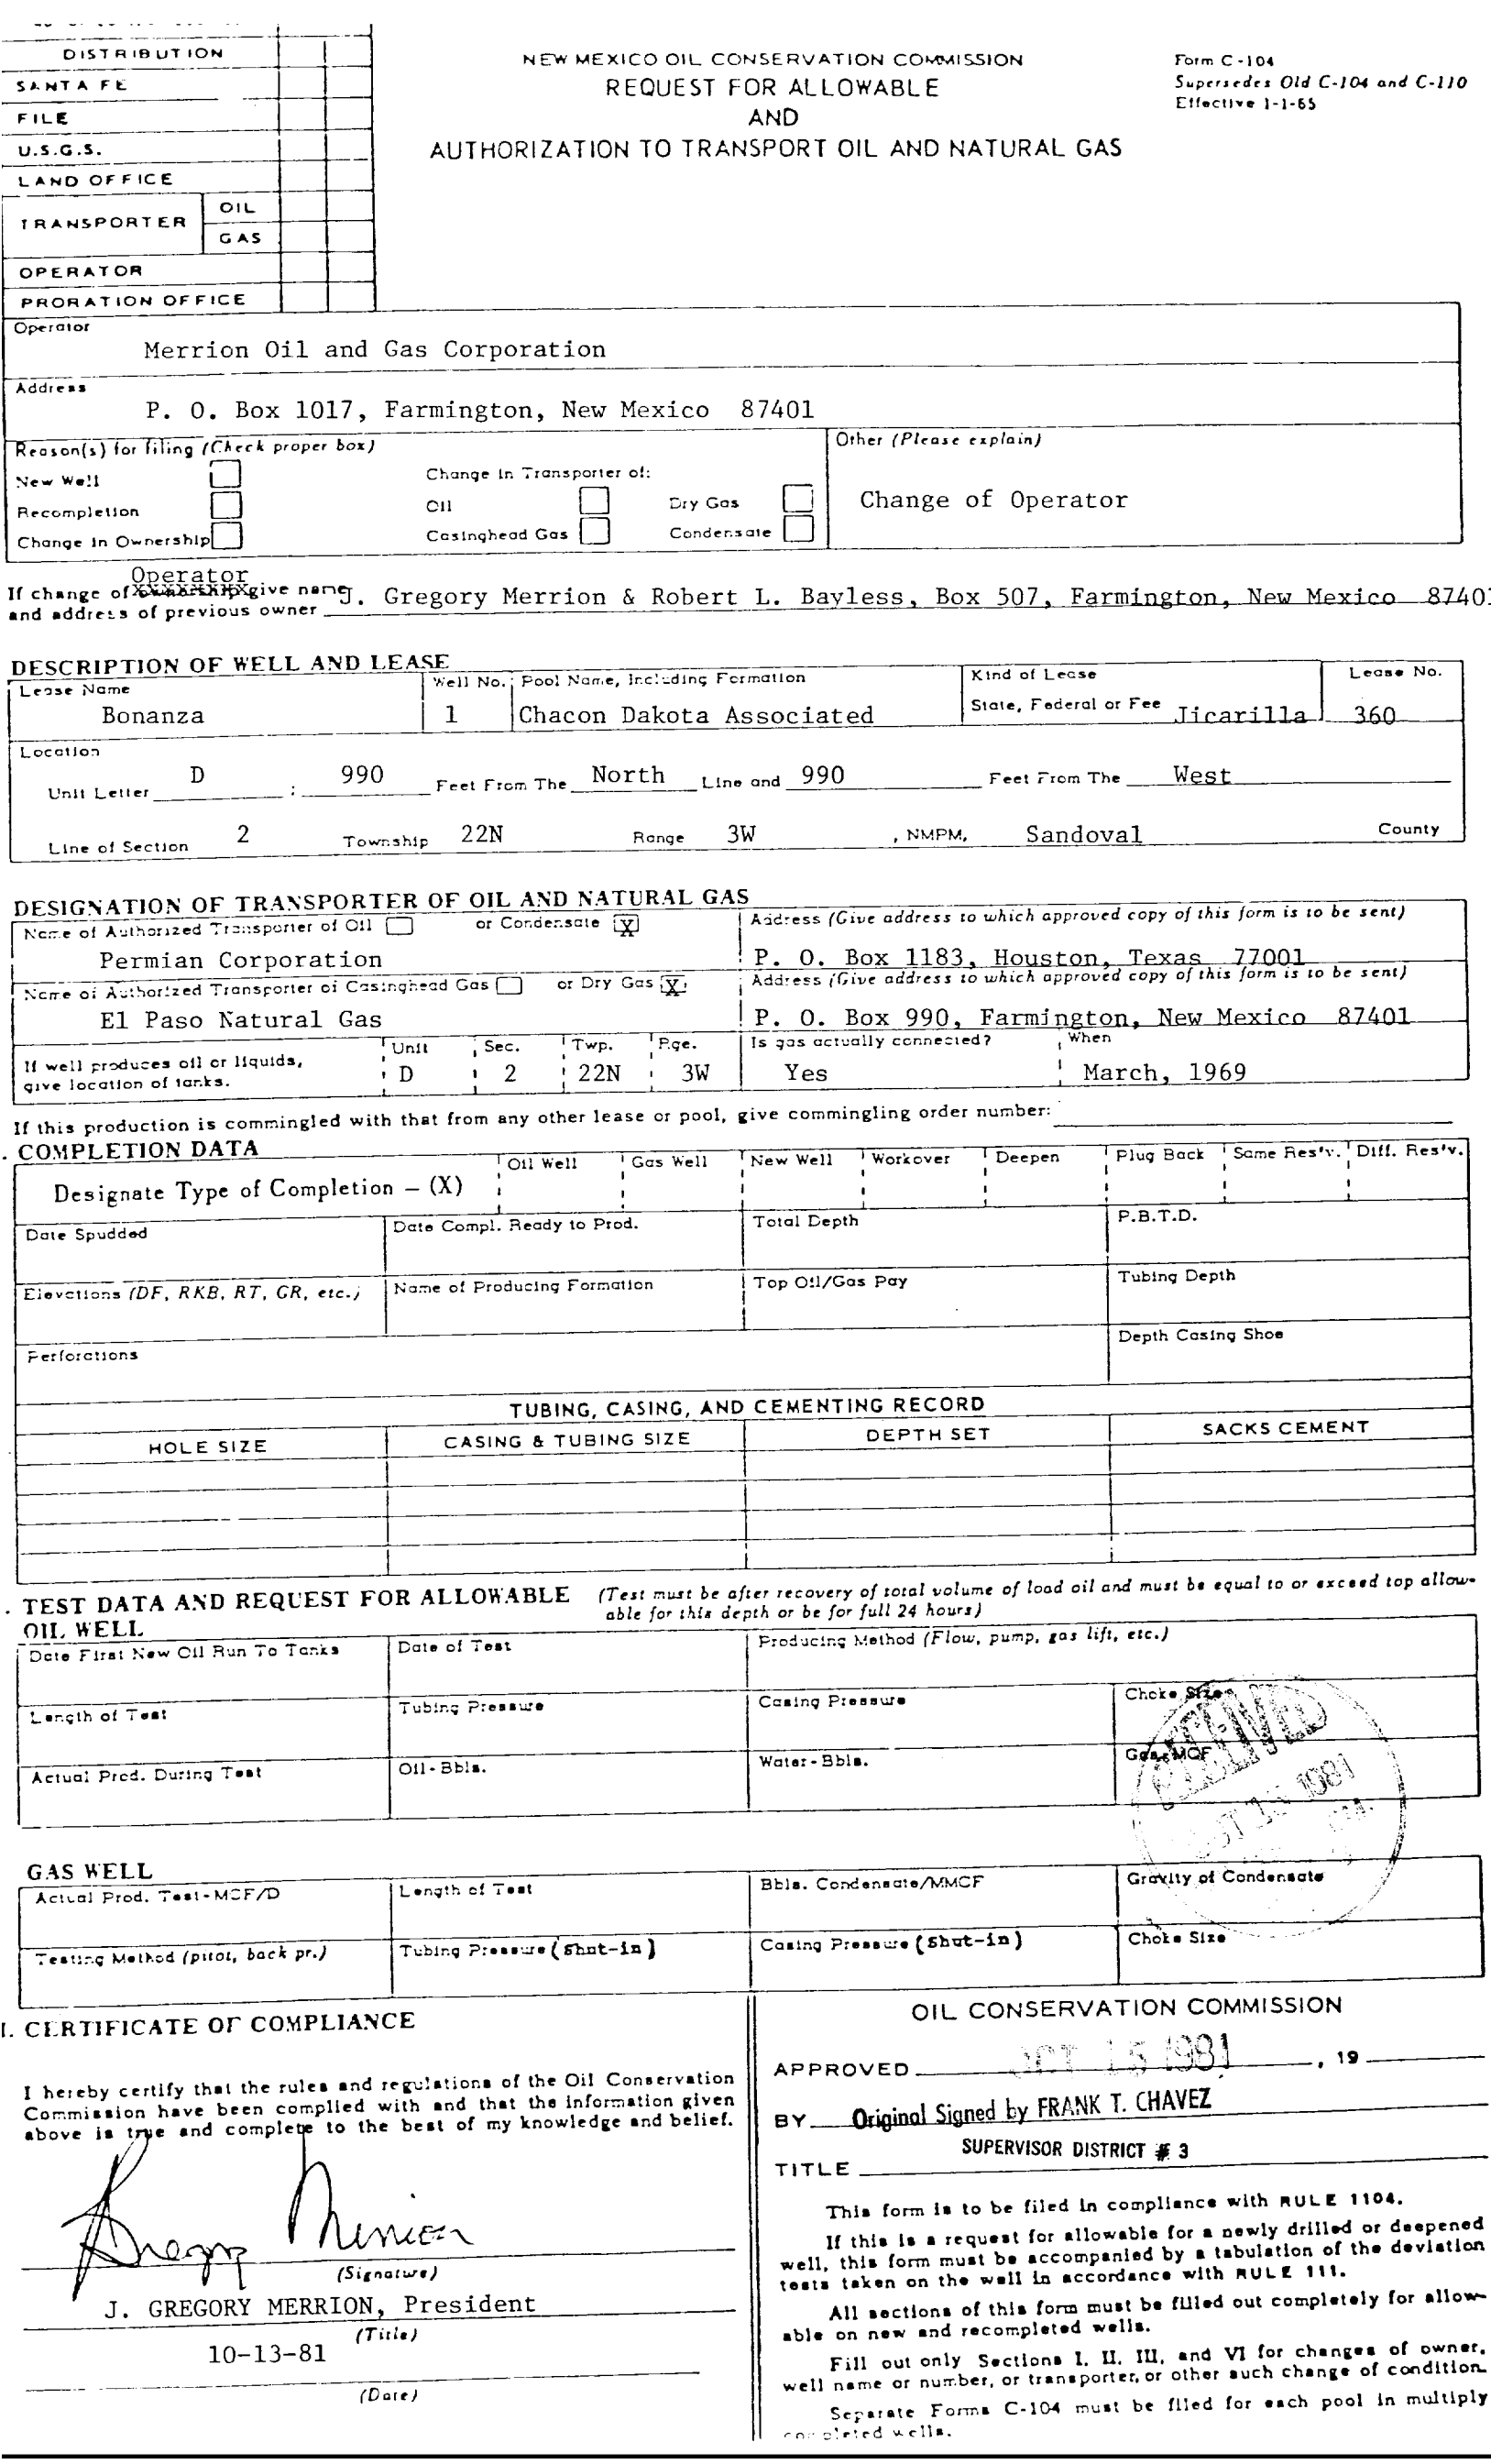 DISTRIBUTION
SANTA FE
FILE
U.S.G.S.
LAND OFFICE
TRANSPORTER OIL
GAS
OPERATOR
PRORATION OFFICE
NEW MEXICO OIL CONSERVATION COMMISSION
REQUEST FOR ALLOWABLE
AND
AUTHORIZATION TO TRANSPORT OIL AND NATURAL GAS
Form C-104
Supersedes Old C-104 and C-110
Effective 1-1-65
Operator
Merrion Oil and Gas Corporation
Address
P. O. Box 1017, Farmington, New Mexico 87401
Reason(s) for filing (Check proper box)
Other (Please explain)
New Well
Change in Transporter of:
Recompletion
Oil
Dry Gas
Change of Operator
Change in Ownership
Casinghead Gas
Condensate
Operator
If change of ownership give name
and address of previous owner J. Gregory Merrion & Robert L. Bayless, Box 507, Farmington, New Mexico 87401
DESCRIPTION OF WELL AND LEASE
Lease Name Well No. Pool Name, Including Formation Kind of Lease Lease No.
Bonanza 1 Chacon Dakota Associated State, Federal or Fee Jicarilla 360
Location
Unit Letter D : 990 Feet From The North Line and 990 Feet From The West
Line of Section 2 Township 22N Range 3W , NMPM, Sandoval County
DESIGNATION OF TRANSPORTER OF OIL AND NATURAL GAS
Name of Authorized Transporter of Oil or Condensate X Address (Give address to which approved copy of this form is to be sent)
Permian Corporation P. O. Box 1183, Houston, Texas 77001
Name of Authorized Transporter of Casinghead Gas or Dry Gas X Address (Give address to which approved copy of this form is to be sent)
El Paso Natural Gas P. O. Box 990, Farmington, New Mexico 87401
If well produces oil or liquids, Unit Sec. Twp. Rge. Is gas actually connected? When
give location of tanks. D 2 22N 3W Yes March, 1969
If this production is commingled with that from any other lease or pool, give commingling order number:
. COMPLETION DATA
Designate Type of Completion – (X) Oil Well Gas Well New Well Workover Deepen Plug Back Same Res'v. Diff. Res'v.
Date Spudded Date Compl. Ready to Prod. Total Depth P.B.T.D.
Elevations (DF, RKB, RT, GR, etc.) Name of Producing Formation Top Oil/Gas Pay Tubing Depth
Perforations Depth Casing Shoe
TUBING, CASING, AND CEMENTING RECORD
HOLE SIZE CASING & TUBING SIZE DEPTH SET SACKS CEMENT
. TEST DATA AND REQUEST FOR ALLOWABLE (Test must be after recovery of total volume of load oil and must be equal to or exceed top allow-
OIL WELL able for this depth or be for full 24 hours)
Date First New Oil Run To Tanks Date of Test Producing Method (Flow, pump, gas lift, etc.)
Length of Test Tubing Pressure Casing Pressure Choke Size
Actual Prod. During Test Oil-Bbls. Water-Bbls. Gas-MCF
RECEIVED
1981
GAS WELL
Actual Prod. Test-MCF/D Length of Test Bbls. Condensate/MMCF Gravity of Condensate
Testing Method (pitot, back pr.) Tubing Pressure (Shut-in) Casing Pressure (Shut-in) Choke Size
I. CERTIFICATE OF COMPLIANCE
I hereby certify that the rules and regulations of the Oil Conservation
Commission have been complied with and that the information given
above is true and complete to the best of my knowledge and belief.
(Signature)
J. GREGORY MERRION, President
(Title)
10-13-81
(Date)
OIL CONSERVATION COMMISSION
APPROVED OCT 15 1981 , 19
BY Original Signed by FRANK T. CHAVEZ
SUPERVISOR DISTRICT # 3
TITLE
This form is to be filed in compliance with RULE 1104.
If this is a request for allowable for a newly drilled or deepened
well, this form must be accompanied by a tabulation of the deviation
tests taken on the well in accordance with RULE 111.
All sections of this form must be filled out completely for allow-
able on new and recompleted wells.
Fill out only Sections I, II, III, and VI for changes of owner,
well name or number, or transporter, or other such change of condition.
Separate Forms C-104 must be filed for each pool in multiply
completed wells.